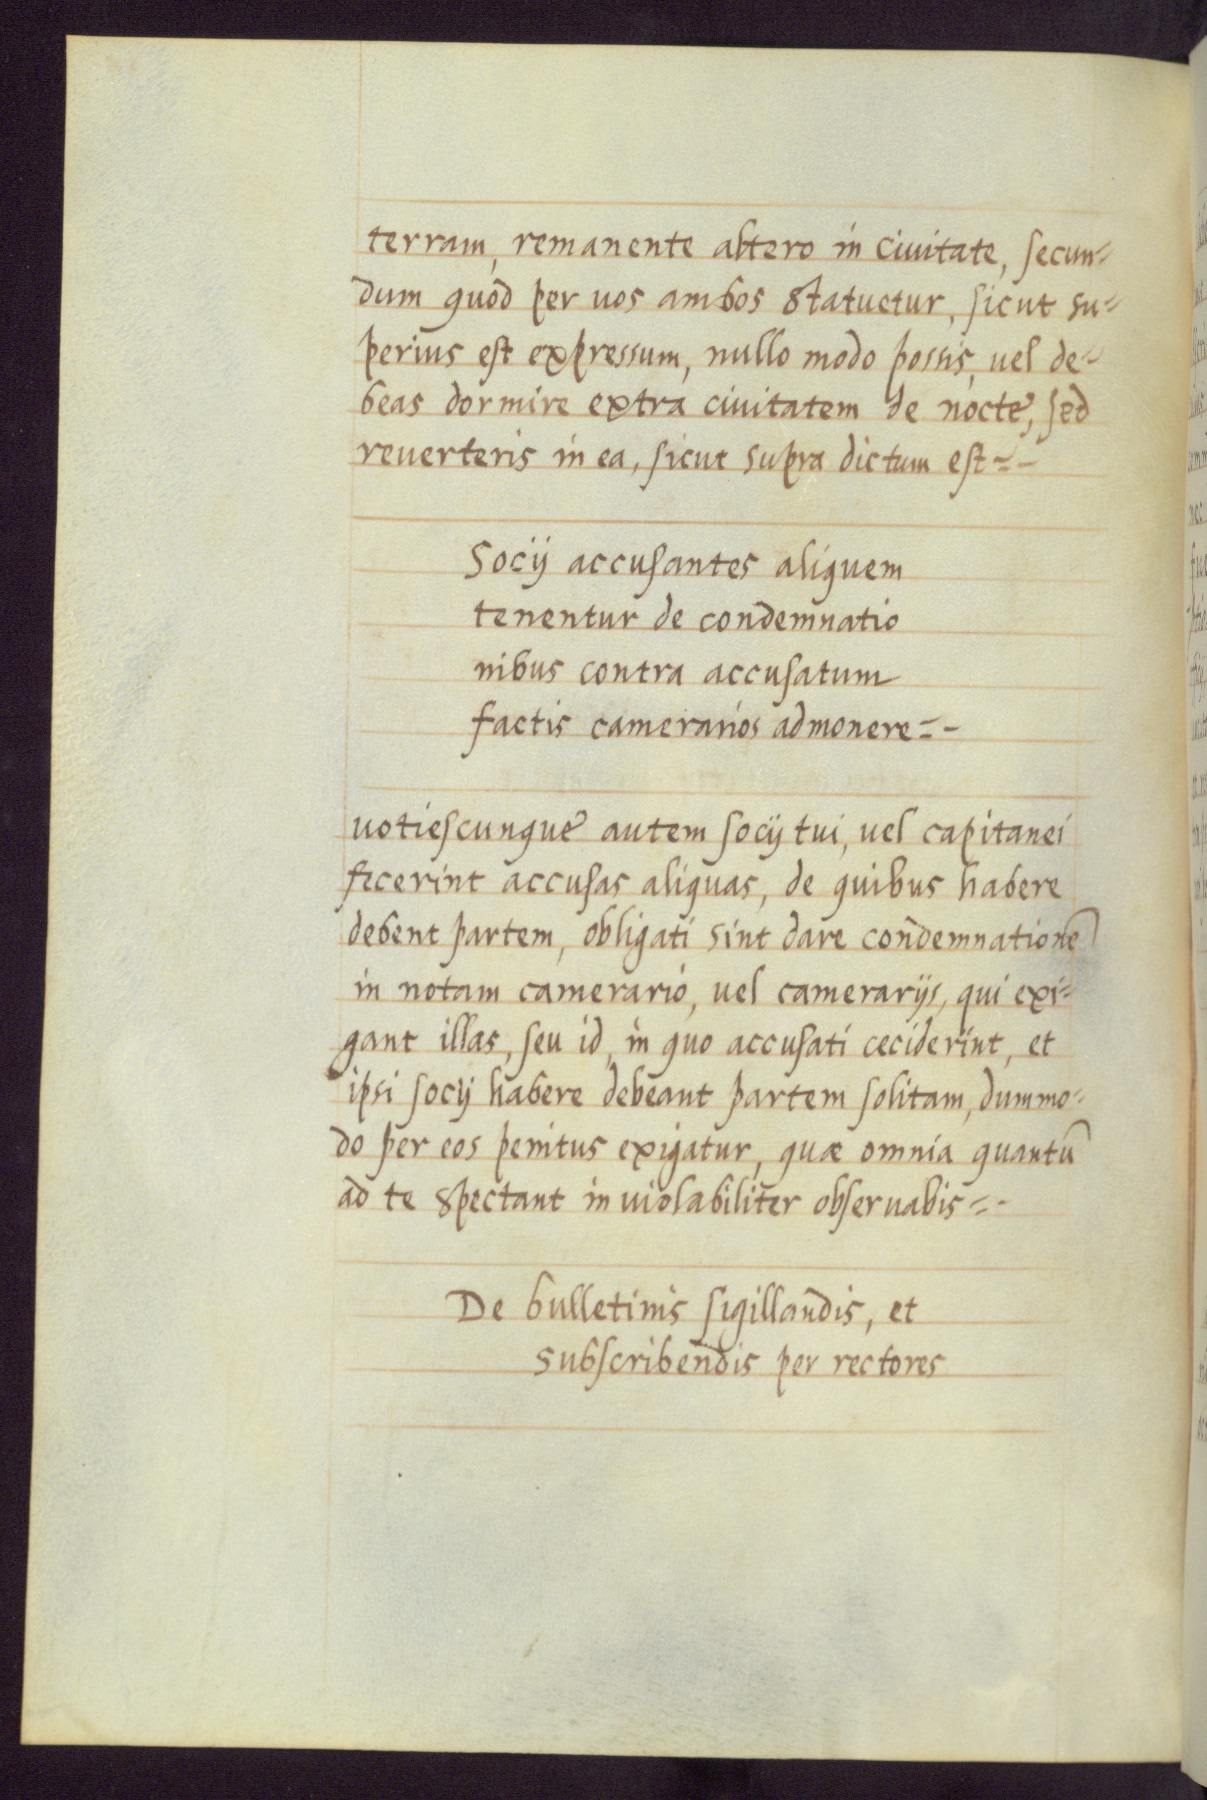 terram, remanente altero in Ciuitate, secun=
dum quod per uos ambos statuetur, sicut su=
perius est expressum, nullo modo possis, uel de=
beas dormire extra ciuitatem de nocte, sed
reuerteris in ea, sicut supra dictum est=-
Socij accusantes aliquem
tenentur de condemnatio
nibus contra accusatum
factis camerarios admonere=-
uotiescunque autem socij tui, uel capitanei
fecerint accusas aliquas, de quibus habere
debent partem, obligati sint dare condemnationē
in notam camerario, uel camerarijs, qui exi=
gant illas, seu id, in quo accusati ceciderint, et
ipsi socij habere debeant partem solitam, dummo=
do per eos penitus exigatur, quæ omnia quantū
ad te spectant inuiolabiliter obseruabis=-
De bulletinis sigillandis, et
subscribendis per rectores